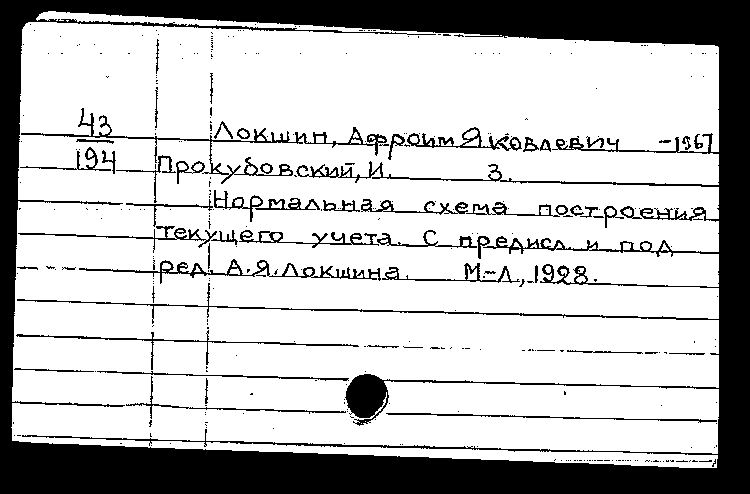 43
194
Локшин, Афроим Яковлевич -1967
Прокубовский, И. З.
Нормальная схема построения
текущего учета. С предисл. и под
ред. А.Я.Локшина. М-Л., 1928.